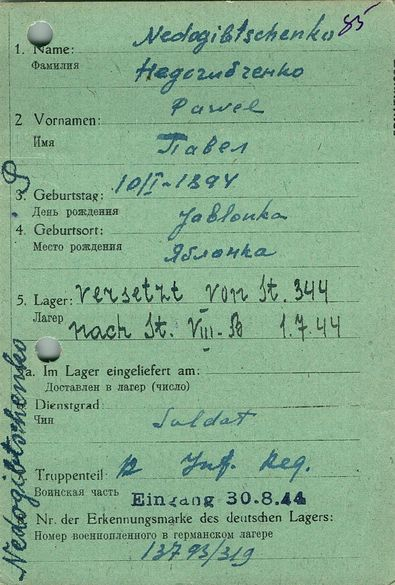 85
Nedogibtschenko
1. Name:
Фамилия
Недогибченко
Pawel
2 Vornamen:
Имя
Павел
3. Geburtstag: 10/I-1894
День рождения
Jablonka
4. Geburtsort:
Место рождения
Яблонка
5. Lager: versetzt von St. 344
Лагер
nach St. VIII-B 1.7.44
a. Im Lager eingeliefert am:
Доставлен в лагер (число)
Dienstgrad
Чин
Soldat
Truppenteil Inf. Reg.
Воинская часть
Eingang 30.8.44
Nr. der Erkennungsmarke des deutschen Lagers:
Номер военнопленного в германском лагере
13793/319
Nedogibtschenko P.